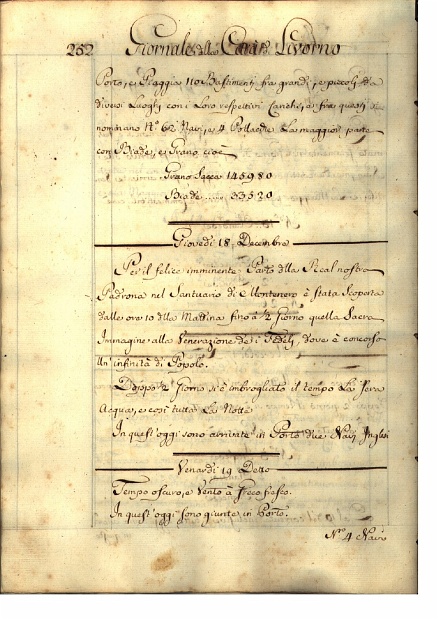 252 Giornale della Città di Livorno
Porto, e Piaggia 110 Bastimenti fra grandi, e piccoli da
diversi Luoghi con i Loro respettivi Carichi, e fra questi si
nominano N.º 62 Navi, e 4 Pollacche La maggior parte
con Biade, e Grano cioè
Grano Sacca 145980
Biade ..... 33520
Giovedì 18 Decembre
Per il felice imminente Parto della Real nostra
Padrona nel Santuario di Montenero è stata Scoperta
dalle ore 10 della Mattina fino a ½ Giorno quella Sacra
Immagine alla Venerazione de i Fedeli, dove è concorso
Un'infinità di Popolo.
Doppo ½ Giorno si è imbrogliato il tempo La sera
Acqua, e così tutta La Notte
In quest'oggi sono arrivate in Porto due Navi Inglesi
Venardì 19 Detto
Tempo oscuro, e Vento a Greco fresco.
In quest'oggi sono giunte in Porto.
N.º 4 Navi